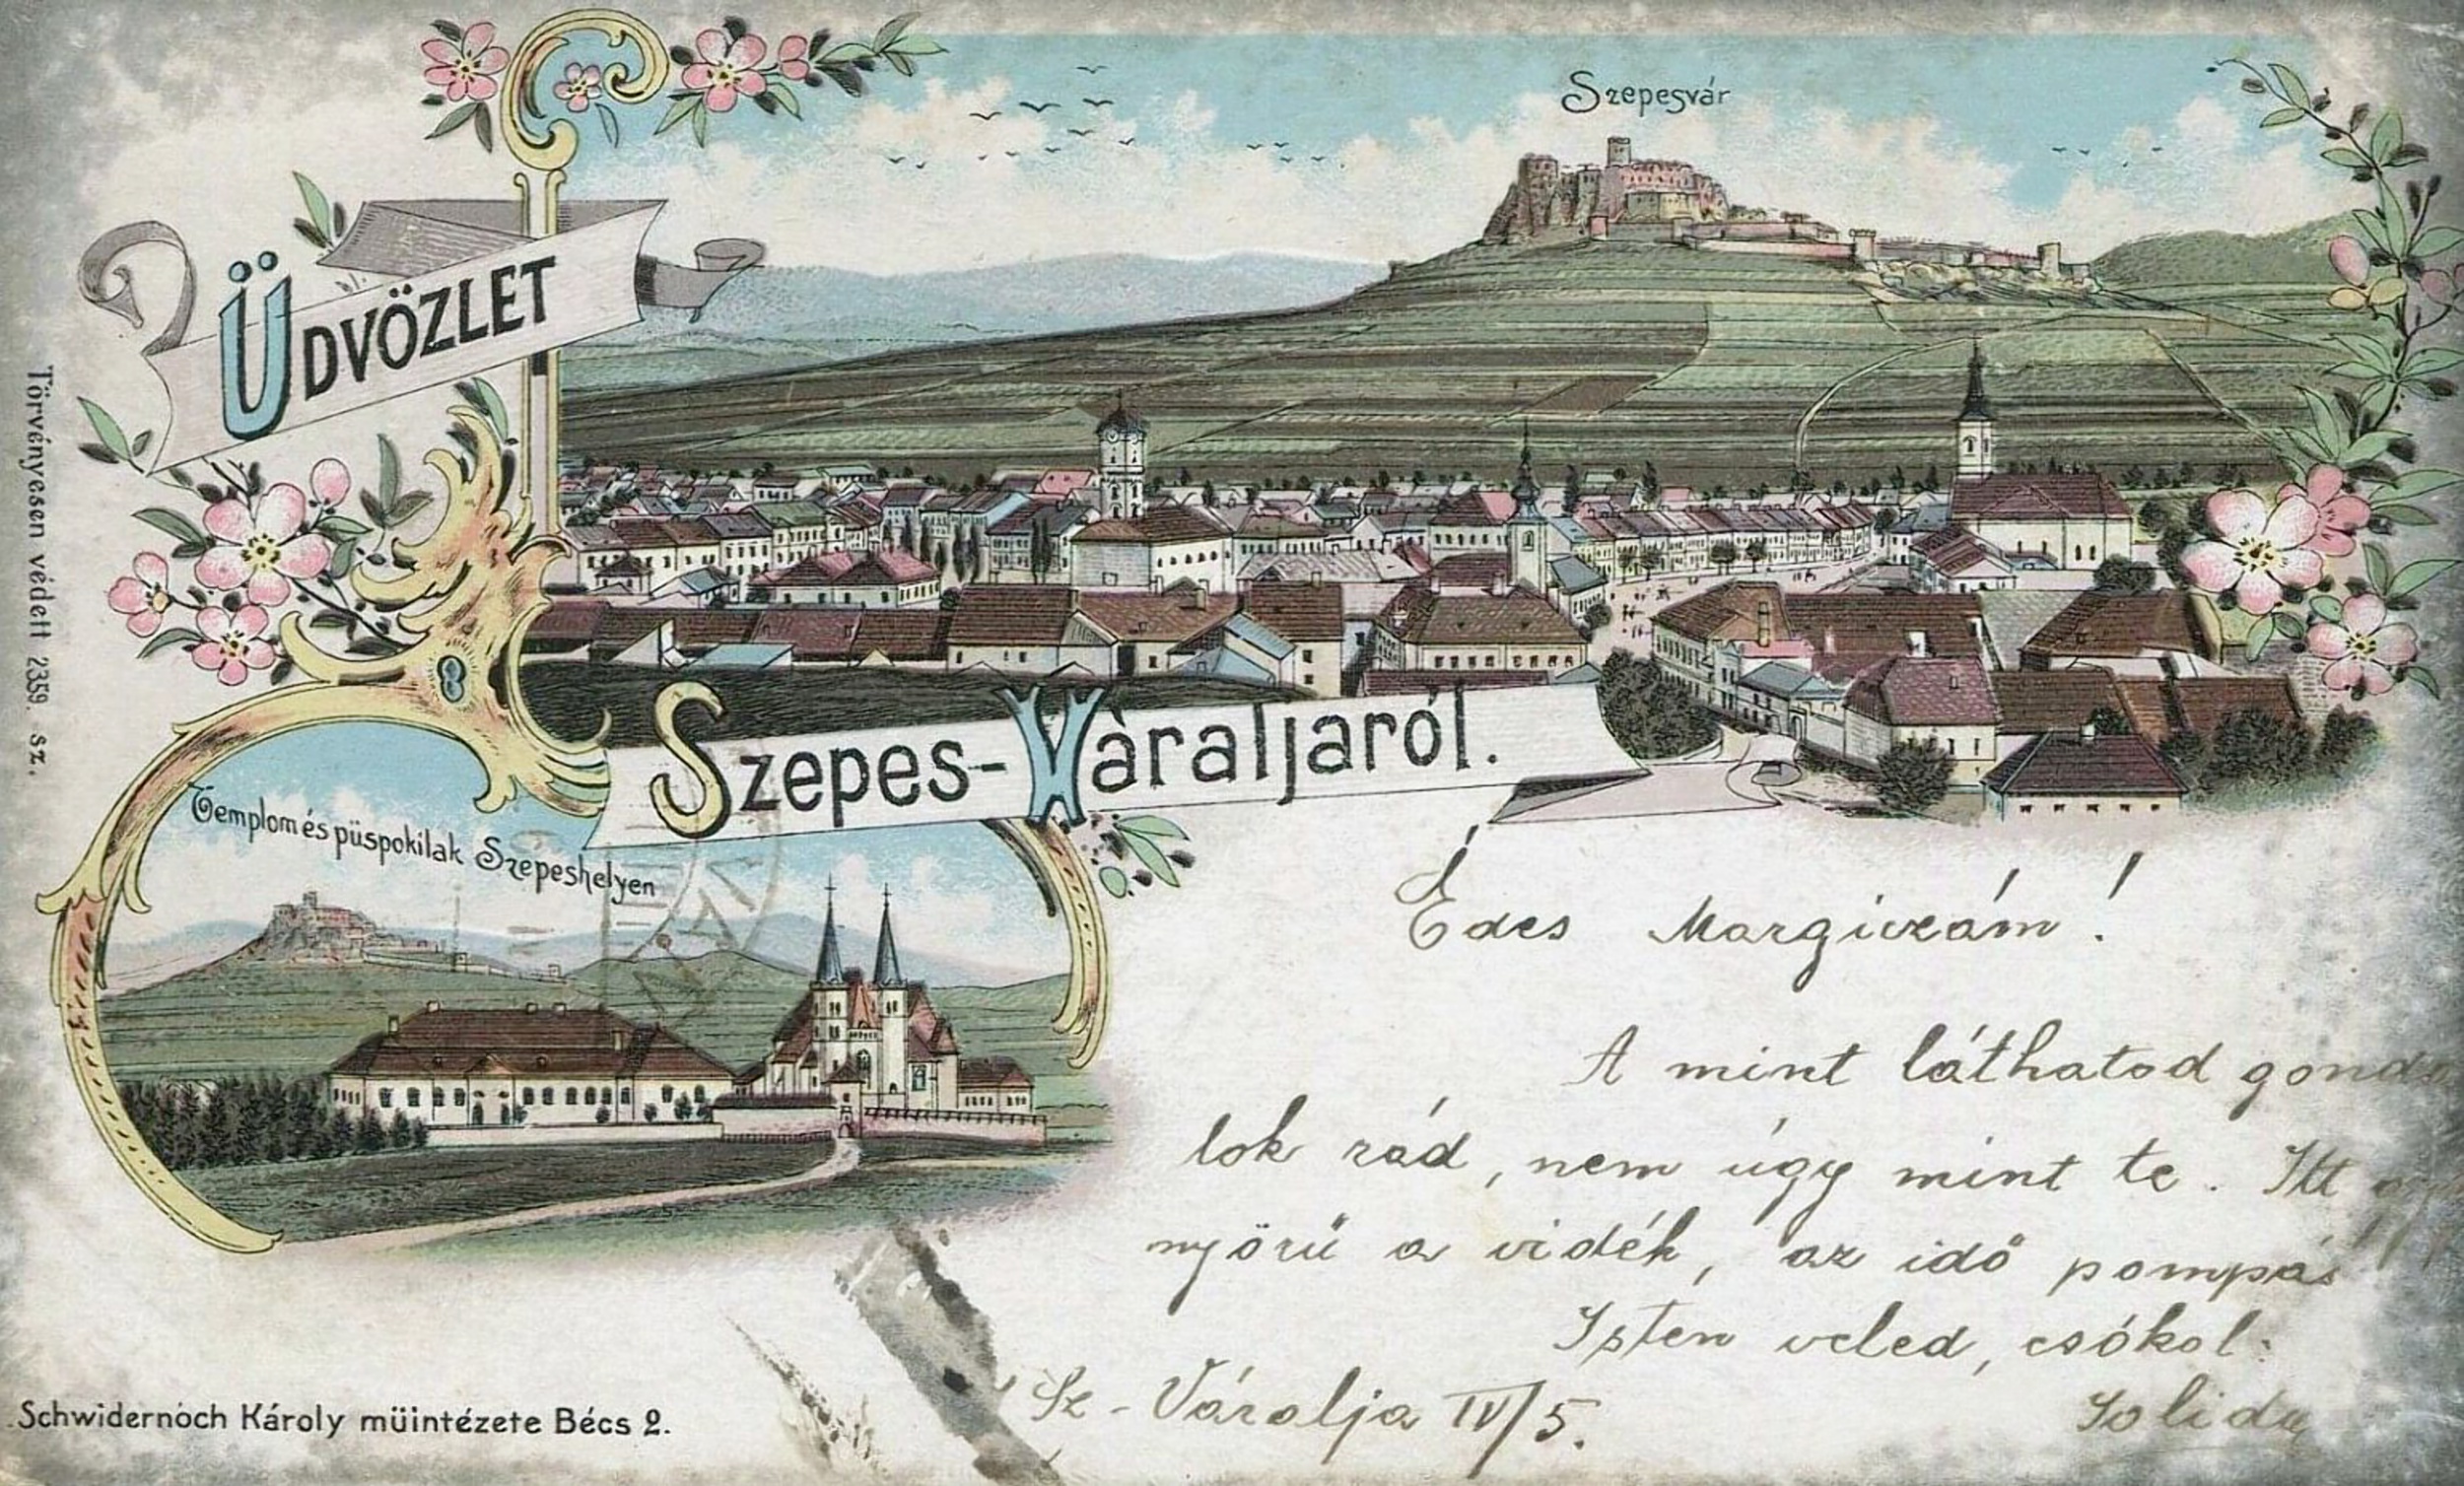 Szepesvár
ÜDVÖZLET
Törvényesen védett 2359. sz.
Szepes-Váraljaról.
Templom és püspökilak Szepeshelyen
Édes Margiczám!
A mint láthatod gondo
lok rád, nem úgy mint te. Itt
nyörü a vidék, az idő pompás
Isten veled, csókol:
Sz-Váralja IV/5.
Schwidernoch Károly müintézete Bécs 2.